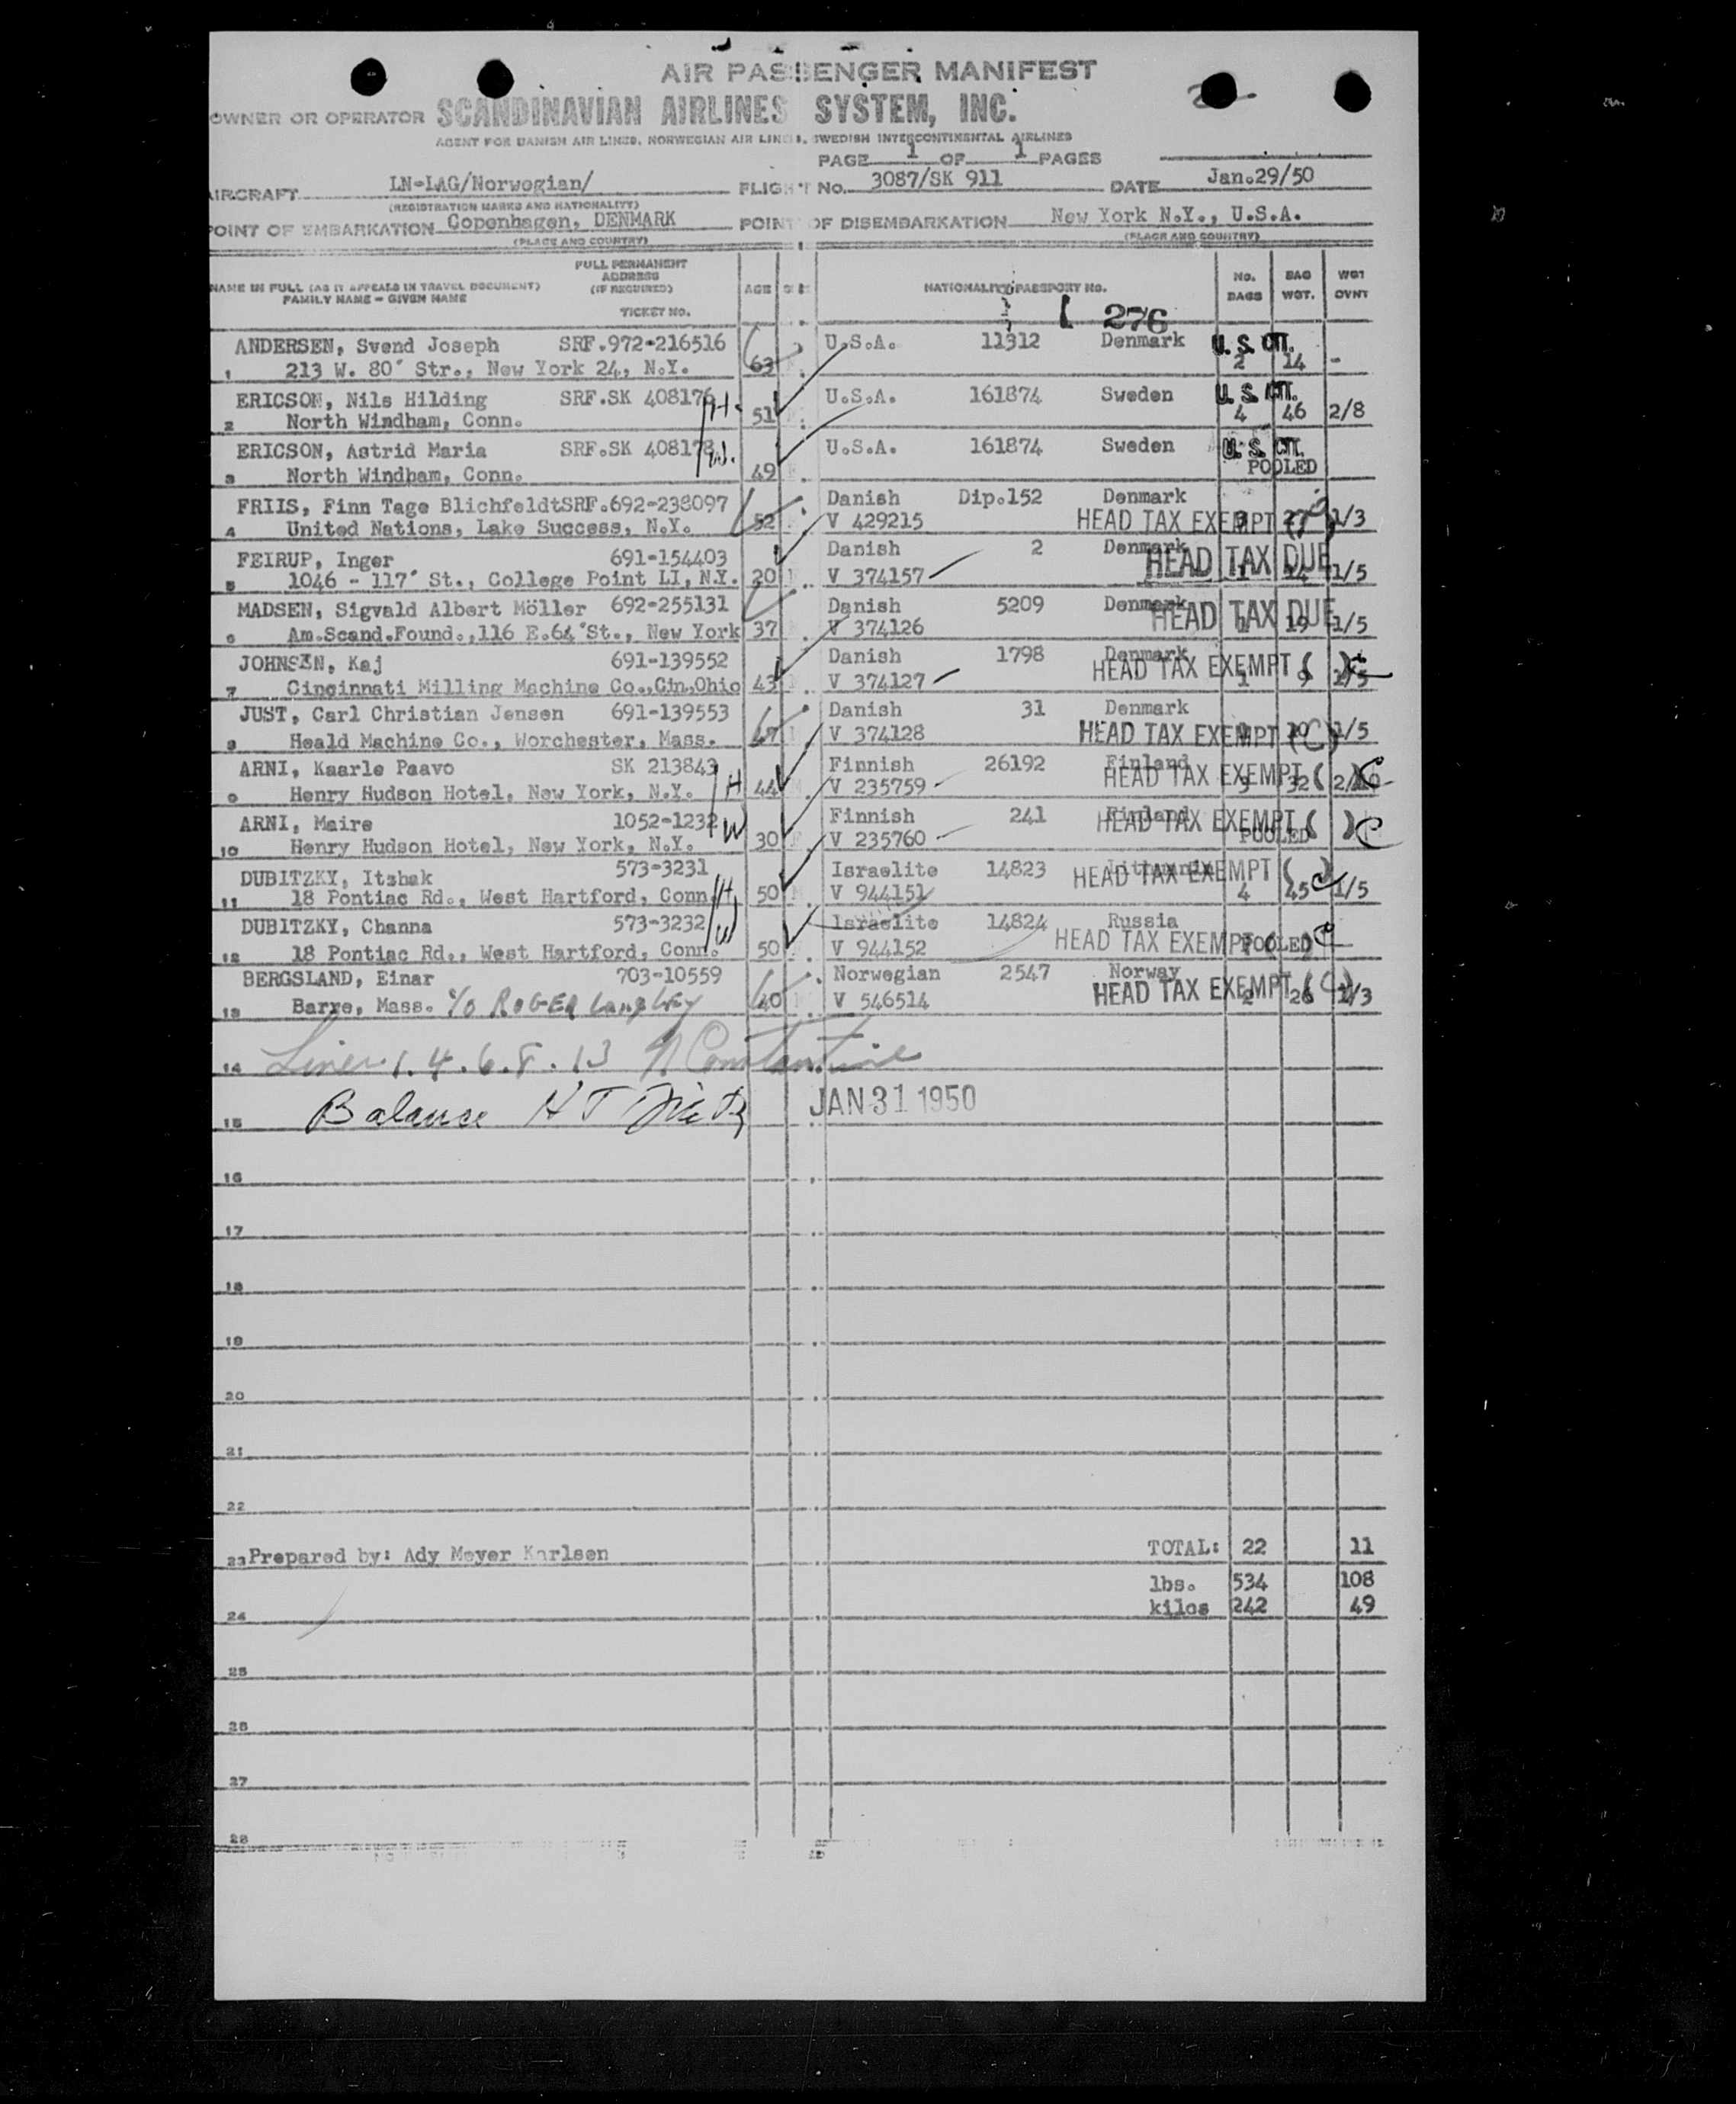 AIR PASSENGER MANIFEST
OWNER OR OPERATOR SCANDINAVIAN AIRLINES SYSTEM, INC.
AGENT FOR DANISH AIR LINES, NORWEGIAN AIR LINES, SWEDISH INTERCONTINENTAL AIRLINES
PAGE 1 OF 1 PAGES
AIRCRAFT LN-LAG/Norwegian/ FLIGHT No. 3087/SK 911 DATE Jan.29/50
(REGISTRATION MARKS AND NATIONALITY)
POINT OF EMBARKATION Copenhagen, DENMARK POINT OF DISEMBARKATION New York N.Y., U.S.A.
(PLACE AND COUNTRY) (PLACE AND COUNTRY)
NAME IN FULL (AS IT APPEARS IN TRAVEL DOCUMENT) FAMILY NAME - GIVEN NAME
FULL PERMANENT ADDRESS (IF REQUIRED) TICKET NO.
AGE NATIONALITY PASSPORT NO. No. BAGS BAG WGT. WGT OVNT
276
ANDERSEN, Svend Joseph SRF.972-216516 U.S.A. 11312 Denmark U. S. CIT.
1 213 W. 80' Str., New York 24, N.Y. 63 2 14 -
ERICSON, Nils Hilding SRF.SK 408176 H U.S.A. 161874 Sweden U. S. CIT.
2 North Windham, Conn. 51 4 46 2/8
ERICSON, Astrid Maria SRF.SK 408178 W. U.S.A. 161874 Sweden U. S. CIT.
3 North Windham, Conn. 49 POOLED
FRIIS, Finn Tage BlichfeldtSRF.692-238097 Danish Dip.152 Denmark
4 United Nations, Lake Success, N.Y. 52 V 429215 HEAD TAX EXEMPT 1/3
FEIRUP, Inger 691-154403 Danish 2 Denmark
5 1046 - 117' St., College Point LI, N.Y. 20 V 374157 HEAD TAX DUE 1/5
MADSEN, Sigvald Albert Möller 692-255131 Danish 5209 Denmark
6 Am.Scand.Found.,116 E.64'St., New York 37 V 374126 HEAD TAX DUE 19 1/5
JOHNSEN, Kaj 691-139552 Danish 1798 Denmark
7 Cincinnati Milling Machine Co.,Cin,Ohio 43 V 374127 HEAD TAX EXEMPT ( )
JUST, Carl Christian Jensen 691-139553 Danish 31 Denmark
8 Heald Machine Co., Worchester, Mass. 47 V 374128 HEAD TAX EXEMPT (C) 1/5
ARNI, Kaarle Paavo SK 213843 H Finnish 26192 Finland
9 Henry Hudson Hotel, New York, N.Y. 44 V 235759 HEAD TAX EXEMPT ( ) C 3 32
ARNI, Maire 1052-1232 W Finnish 241 Finland
10 Henry Hudson Hotel, New York, N.Y. 30 V 235760 HEAD TAX EXEMPT ( ) C POOLED
DUBITZKY, Itzhak 573-3231 Israelite 14823 Lithuania
11 18 Pontiac Rd., West Hartford, Conn. H 50 V 944151 HEAD TAX EXEMPT ( ) C 4 45 1/5
DUBITZKY, Channa 573-3232 W Israelite 14824 Russia
12 18 Pontiac Rd., West Hartford, Conn. 50 V 944152 HEAD TAX EXEMPT ( ) C POOLED
BERGSLAND, Einar 703-10559 Norwegian 2547 Norway
13 Barre, Mass. c/o ROGER Langley 40 V 546514 HEAD TAX EXEMPT (C) 2 26 1/3
14 Lines 1.4.6.8.13 N Constantine
15 Balance H T JAN 31 1950
16
17
18
19
20
21
22
23 Prepared by: Ady Meyer Karlsen TOTAL: 22 11
lbs. 534 108
24 kilos 242 49
25
26
27
28